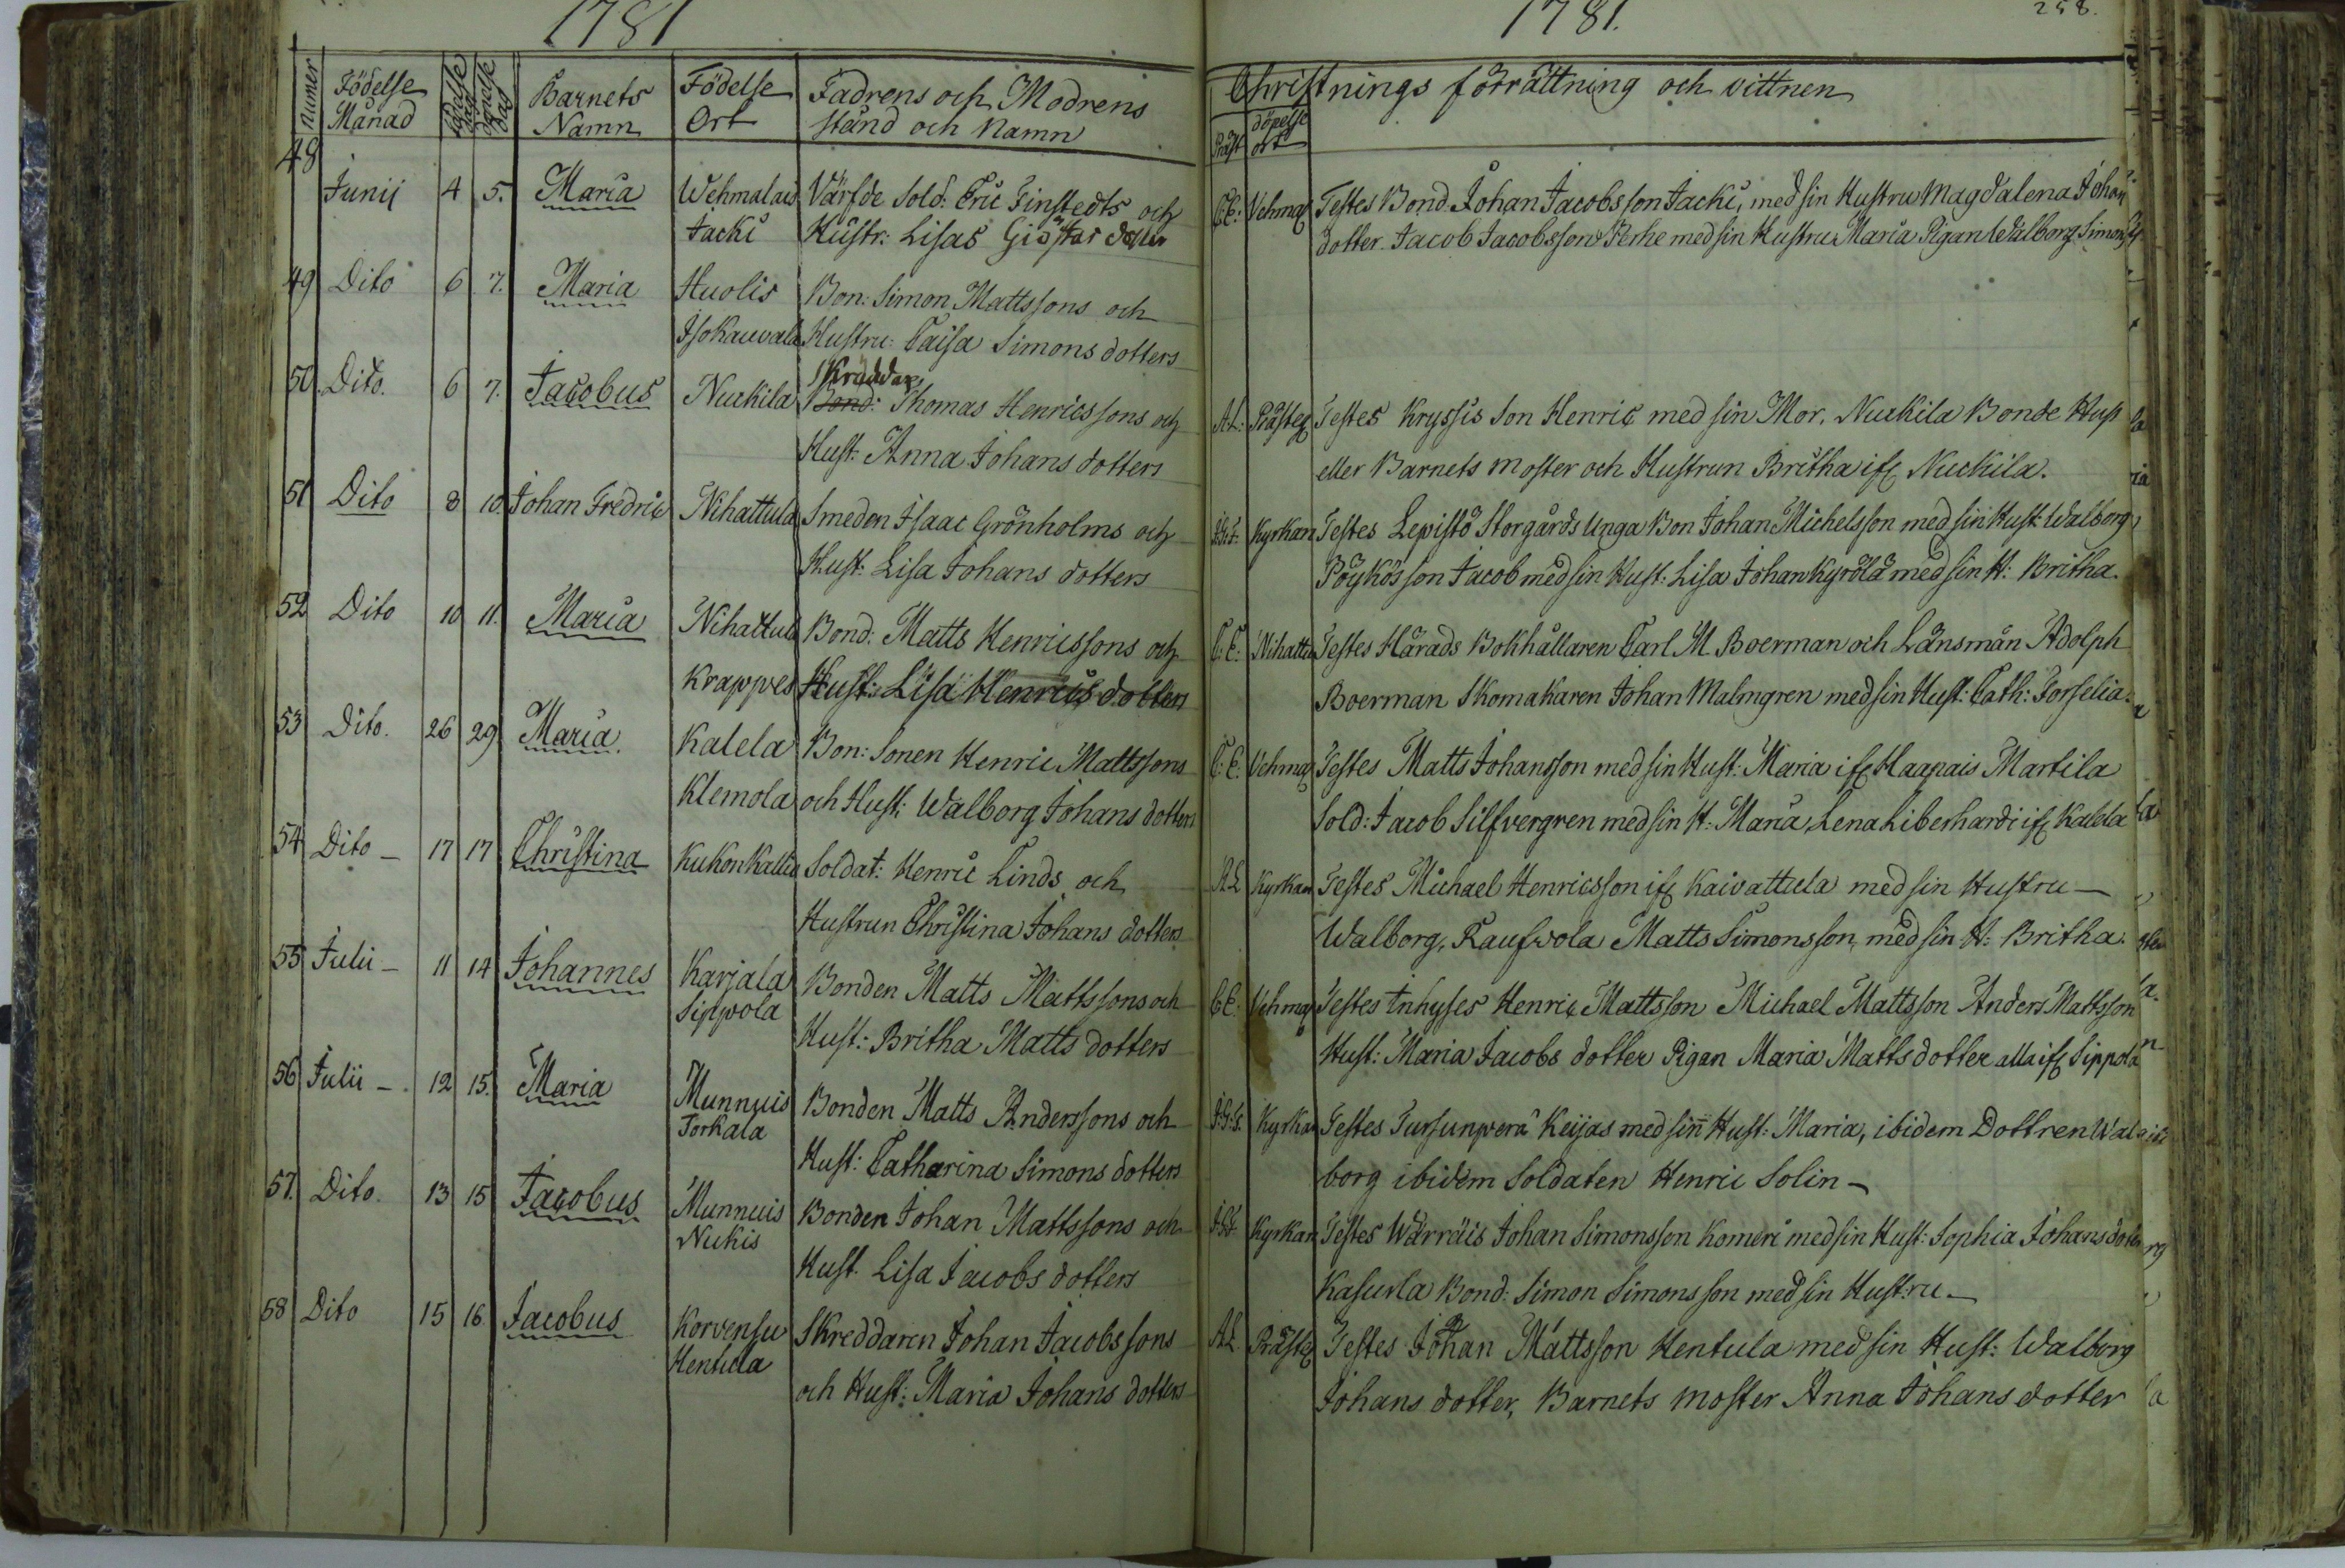 1781
Numer Födelse Månad Födelse dag döpnelse dag Barnets Namn Födelse Ort Fadrens och Modrens stånd och Namn
48 Junij 4 5. Maria Wehmalais Värfde Sold: Eric Finstedts och
Jacki Hustr: Lisas Giöstas dotter
49 Dito 6 7. Maria Huolis Bon: Simon Mattssons och
Isokauvala Hustru: Caisa Simons dotters
Skräddar
50. Dito. 6 7. Jacobus Nuckila Bond: Thomas Henricssons och
Hust: Anna Johans dotters
51 Dito 8 10. Johan Fredric Nihattula Smeden Isaac Grönholms och
Hust: Lisa Johans dotters
52 Dito 10 11. Maria Nihattula Bond: Matts Henricssons och
Krappes Hust: Lisa Henrics dotters
53 Dito. 26 29 Maria. Kalela Bon: Sonen Henric Mattssons
Klemola och Hust: Walborg Johans dotters
54 Dito – 17 17 Christina Kukonkallio Soldat: Henric Linds och
Hustrun Christina Johans dotters
55 Julii – 11 14 Johannes Karjala Bonden Matts Mattssons och
Sippola Hust: Britha Matts dotters
56 Julii – 12 15. Maria Munnuis Bonden Matts Anderssons och
Torkala Hust: Catharina Simons dotters
57. Dito. 13 15 Jacobus Munnuis Bonden Johan Mattssons och
Nukis Hust. Lisa Jacobs dotters
58 Dito 15 16 Jacobus Korvensu Skreddaren Johan Jacobssons
Hentula och Hust: Maria Johans dotters
1781.
258.
Christnings förrättning och vittnen
Präst döpelse ort
C:E: Vehma Testes Bond. Johan Jacobsson Jacki, med sin Hustru Magdalena Johan
dotter. Jacob Jacobsson Perhe med sin Hustru Maria Pigan Walborg Simons
A.L: Präste Testes Kryssis Son Henric med sin Mor, Nuckila Bonde Hust
eller Barnets moster och Hustrun Britha if Nuckila.
Kyrkan Testes Lepistö Storgårds Unga Bon Johan Michelsson med sin Hust: Walborg
Pöykös son Jacob med sin Hust: Lisa Johan Kyrölä med sin H: Britha.
C: E: Nihattu Testes Härads Bokhållaren Carl M. Boerman och Länsman Adolph
Boerman Skomakaren Johan Malmgren med sin Hust: Cath: Forselia.
C: E: Vehma Testes Matts Johansson med sin Hust: Maria if Haapais Martila
Sold: Jacob Silfvergren med sin H: Maria, Lena Liberhardi if Kalela
A L Kyrkan Testes Michael Henricsson if Kaivattula med sin Hustru –
Walborg, Matts Simonsson, med sin H: Britha.
C E: Vehma Testes Inhyses Henric Mattsson Michael Mattsson Anders Mattsson
Hust: Maria Jacobs dotter Pigan Maria Matts dotter alla if Sippola
Kyrkan Testes Tursunperä Keijas med sin Hust: Maria, ibidem Dottren Wal
borg ibidem Soldaten Henric Solin –
Kyrkan Testes Wärräis Johan Simonsson Komeri med sin Hust: Sophia Johans dotter
Kasurla Bond: Simon Simons son med sin Hust:ru –
A.L. Präste Testes Johan Mattsson Hentula med sin Hust: Walborg
Johans dotter, Barnets moster Anna Johans dotter